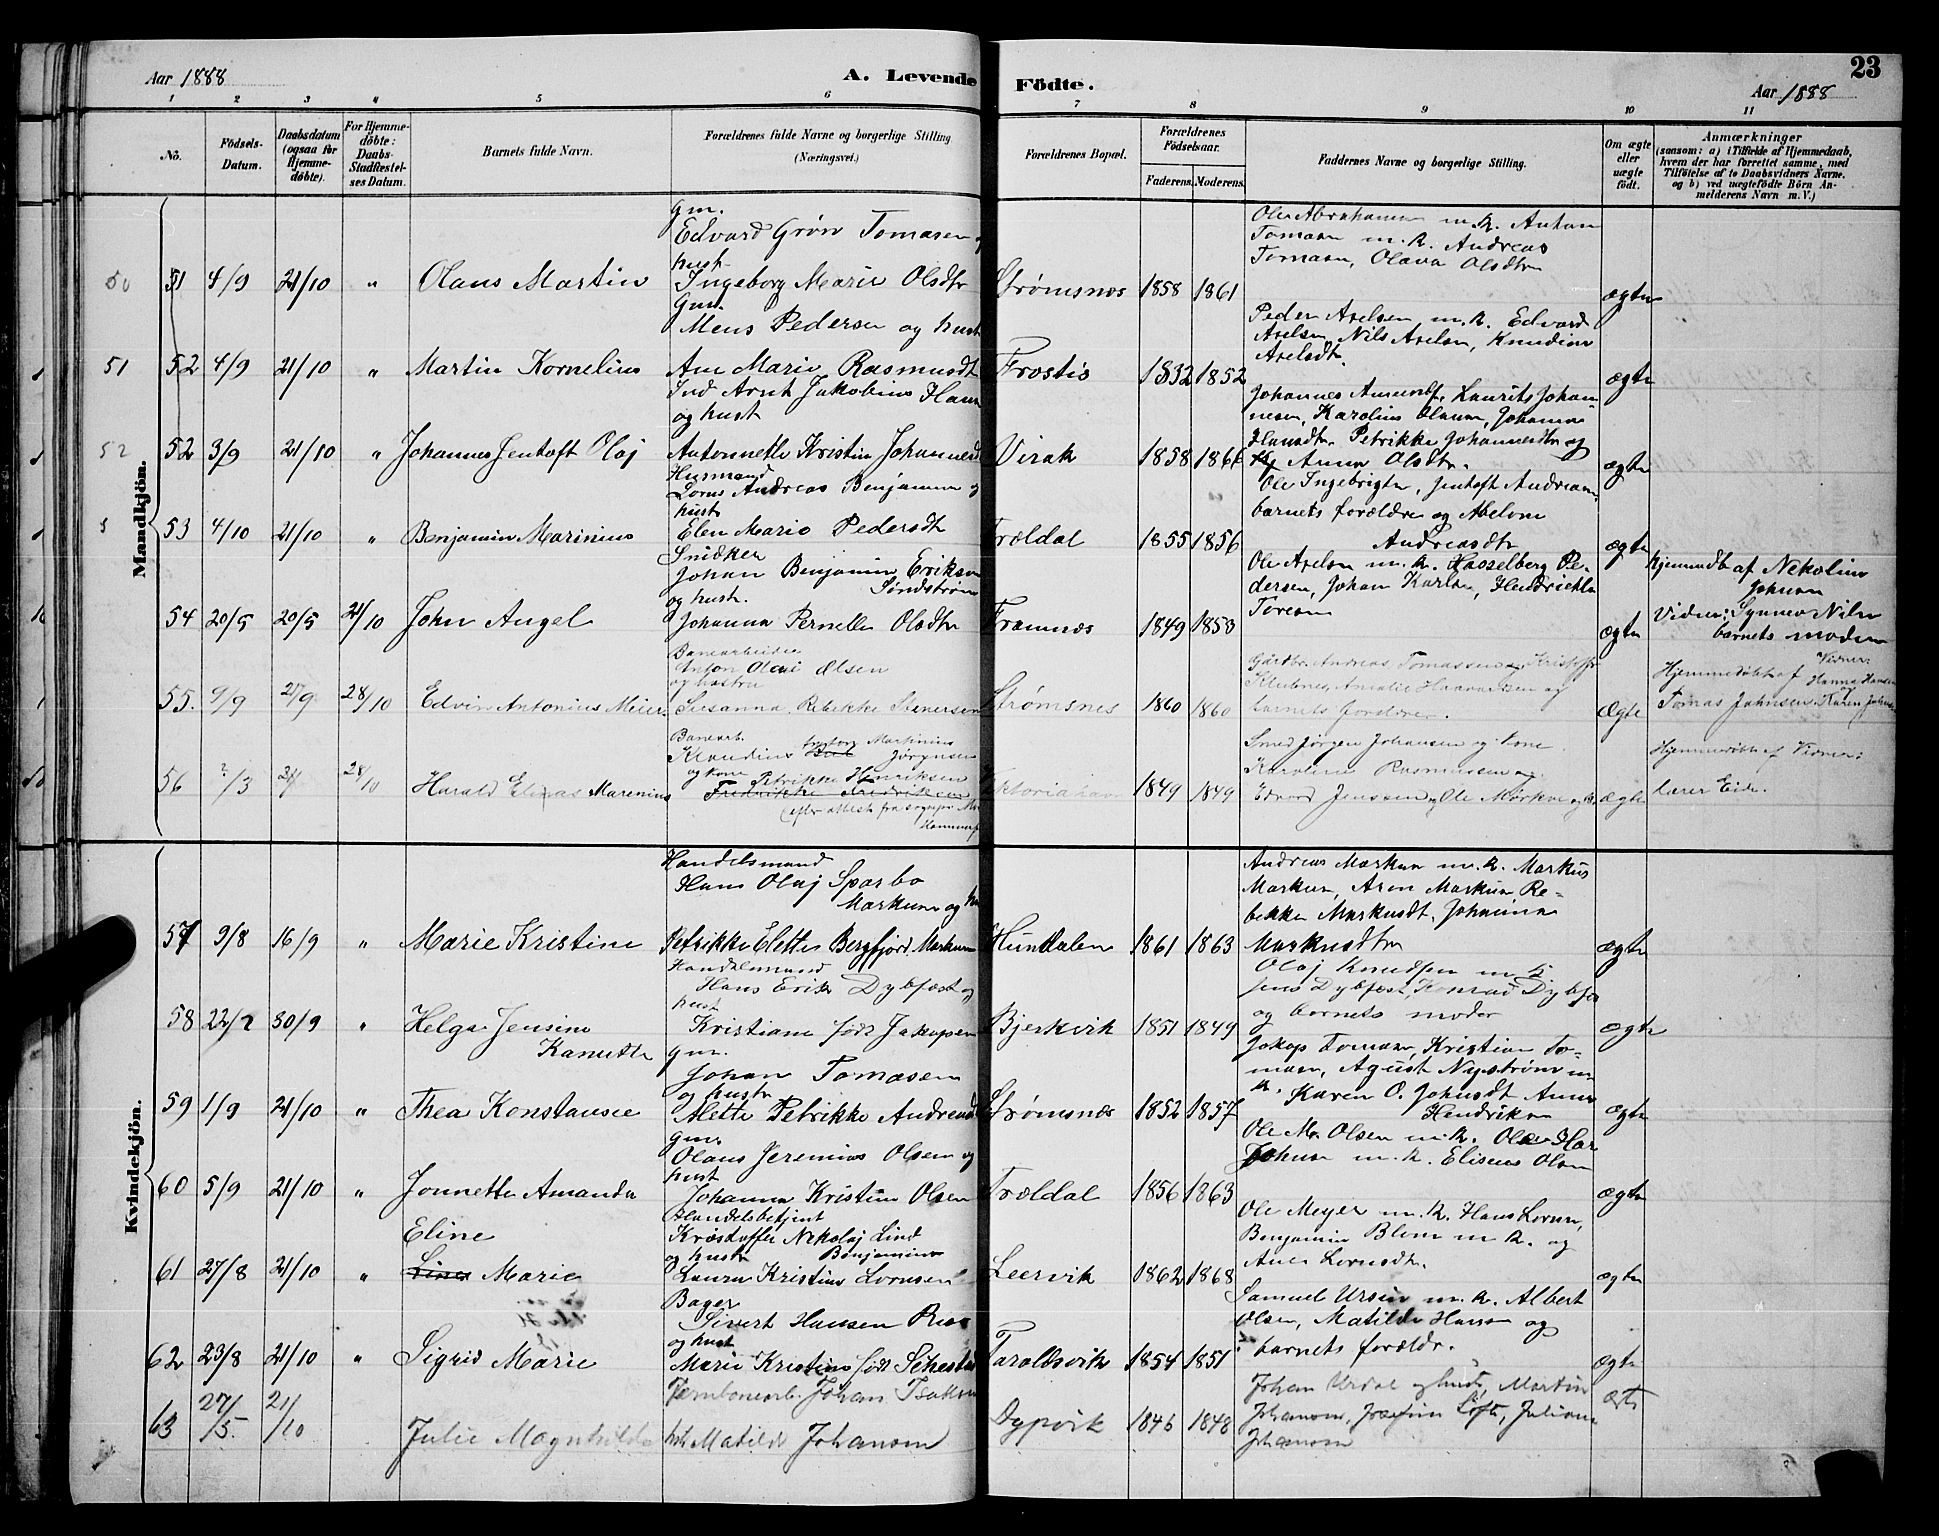 Aar 1888
A. Levende Födte.
23
Aar 1888
1 2 3 4 5 6 7 8 9 10 11
No.
Födsels-Datum.
Daabsdatum (ogsaa for Hjemme-döbte).
For Hjemme-döbte: Daabs-Stadfæstel-ses Datum.
Barnets fulde Navn.
Forældrenes fulde Navne og borgerlige Stilling (Næringsvei.)
Forældrenes Bopæl.
Forældrenes Födselsaar.
Faderens. Moderens.
Faddernes Navne og borgerlige Stilling.
Om ægte eller uægte födt.
Anmærkninger
(saasom: a) i Tilfælde af Hjemmedaab, hvem der har forrettet samme, med Tilföielse af to Daabsvidners Navne. og b) ved uægtefödte Börn An-melderens Navn m. V.)
Mandkjön.
50 51 4/9 21/10 " Olaus Martin
Gm.
Edvard Grön Tomasen og
hust.
Ingeborg Marie Olsdtr
Strømsnes 1858 1861
Ole Abrahamsen m. k. Anton
Tomasen m. k. Andreas
Tomasen, Olava Olsdtr
ægte
51 52 4/9 21/10 " Martin Kornelius
Gm.
Mens Pedersen og hust
Ane Marie Rasmusdt
Frostis 1832 1852
Peder Axelsen m. k. Edvard
Axelsen, Nils Axelsen,
Axelsdt.
ægte
52 52 3/9 21/10 " Johannes Jentoft Olaj
Ind Arnt Jakobius Hans
og hust
Antonnette Kristin Johannesd
Virak 1858
Johannes Amundsen, Laurits Johan-
nesen, Karolius Olausen, Johanna
Hansdtr. Petrikke Johannesdtr og
Anna Olsdtr.
ægte
53 4/10 21/10 " Benjamin Marinius
Husmand
Lorns Andreas Benjamin og
hust
Elen Marie Pedersdt
Trældal 1855 1856
Ole Ingebrigtsen, Jentoft Andreasen
barnets forældre og Abelone
Andreasdtr
ægte
54 20/5 20/5 21/10 John Angel
Snidker
Johan Benjamin Eriksen
Söndström
og hust.
Johanna Pernelle Olsdtr
Framnes 1849 1853
Ole Axelsen m. k. Hasselberg Pe-
dersen, Johan Karlsen,
Toresen
ægte
Hjemmedbt af Nekolina
Johnsen
Vidner: Synnev Nilsen
barnets moder
55. 9/9 27/9 28/10 Edvin Antonius Meier
Banearbeider
Anton Olai Olsen
og hustru
Susanna Rebekke Stenersen
Strømsnes 1860 1860
Gårdbr. Andreas Tomassen og
Klubnes, Amalie Haavardsen og
barnets forældre.
Ægte
Hjemmedøbt af
Vidner:
Hanna Hansen
Tomas Johnsen, Karen Johnsen
56 ?/3 28/10 Harald Elias Marenius
Banearb.
Klaudius Martinius
Jörgensen
og kone Petrikke Henriksen
Fredrikke Fredriksen
(efter attest fra sognepr.
Hammerf
Viktoriahavn 1849 1849
Smed Jørgen Johansen og kone
Karoline Rasmussen og
Edvard Jenssen, Ole Mörkve og k.
ægte
Hjemmedöbt af Vidner:
lærer Eide.
Kvindekjön.
57 9/8 16/9 " Marie Kristine
Handelsmand
Hans Olaj Sparbo
Markusen og hu
Petrikke Elette Bergfjord Markusen
Hundalen 1861 1863
Andreas Markusen m. k. Markus
Markusen, Aron Markusen Re-
bekka Markusdt, Johanna
Markusdtr
ægte
58 22/7 30/9 " Helga Jensine
Kanutte
Handelsmand
Hans Erik Dybfest og
hust
Kristiane födt Jakopsen
Bjerkvik 1851 1849
Olaj Knudsen m k
Jens Dybfest, Konrad Dybfes
og barnets moder
ægte
59 1/9 21/10 " Thea Konstanse
Gm.
Johan Tomasen
og hustr
Mette Petrikke Andreasd
Strømsnes 1852 1857
Jakop Tomasen, Kristian To-
masen, Agust Nyström m
k. Karen O. Johnsdt Anne
Hendriksen
ægte
60 5/9 21/10 " Jonnette Amanda
Gm.
Olaus Jeremias Olsen og
hust
Johanna Kristine Olsen
Trældal 1856 1863
Ole M. Olsen m. k.
Johnsen m. k. Eliseus Olsen
ægte
61 27/8 21/10 " Eline
Marie
Handelsbetjent
Kristoffer Nekolaj Lind
og hustr Benjaminsen
Laura Kristine Lornsen
Leervik 1862 1868
Ole Meyer m. k. Hans Lornsen,
Benjamin Blom m k. og
Ane Lornsdtr.
ægte
62 23/8 21/10 " Sigrid Marie
Bager
Sivert Hansen
og hust
Marie Kristine födt
Taraldsvik 1854 1851
Samuel Ursin m. k. Albert
Olsen, Matilde Hansen og
barnets forældr.
ægte
63 27/5. 21/10 Julie Magnhilde
Jernbanearb. Johan Isaksen
hst Matilde Johansen
Dypvik 1846 1848
Johan Urdal og hust, Martin
Johansen, Josefine Loft, Julianne
Johansen
ægte